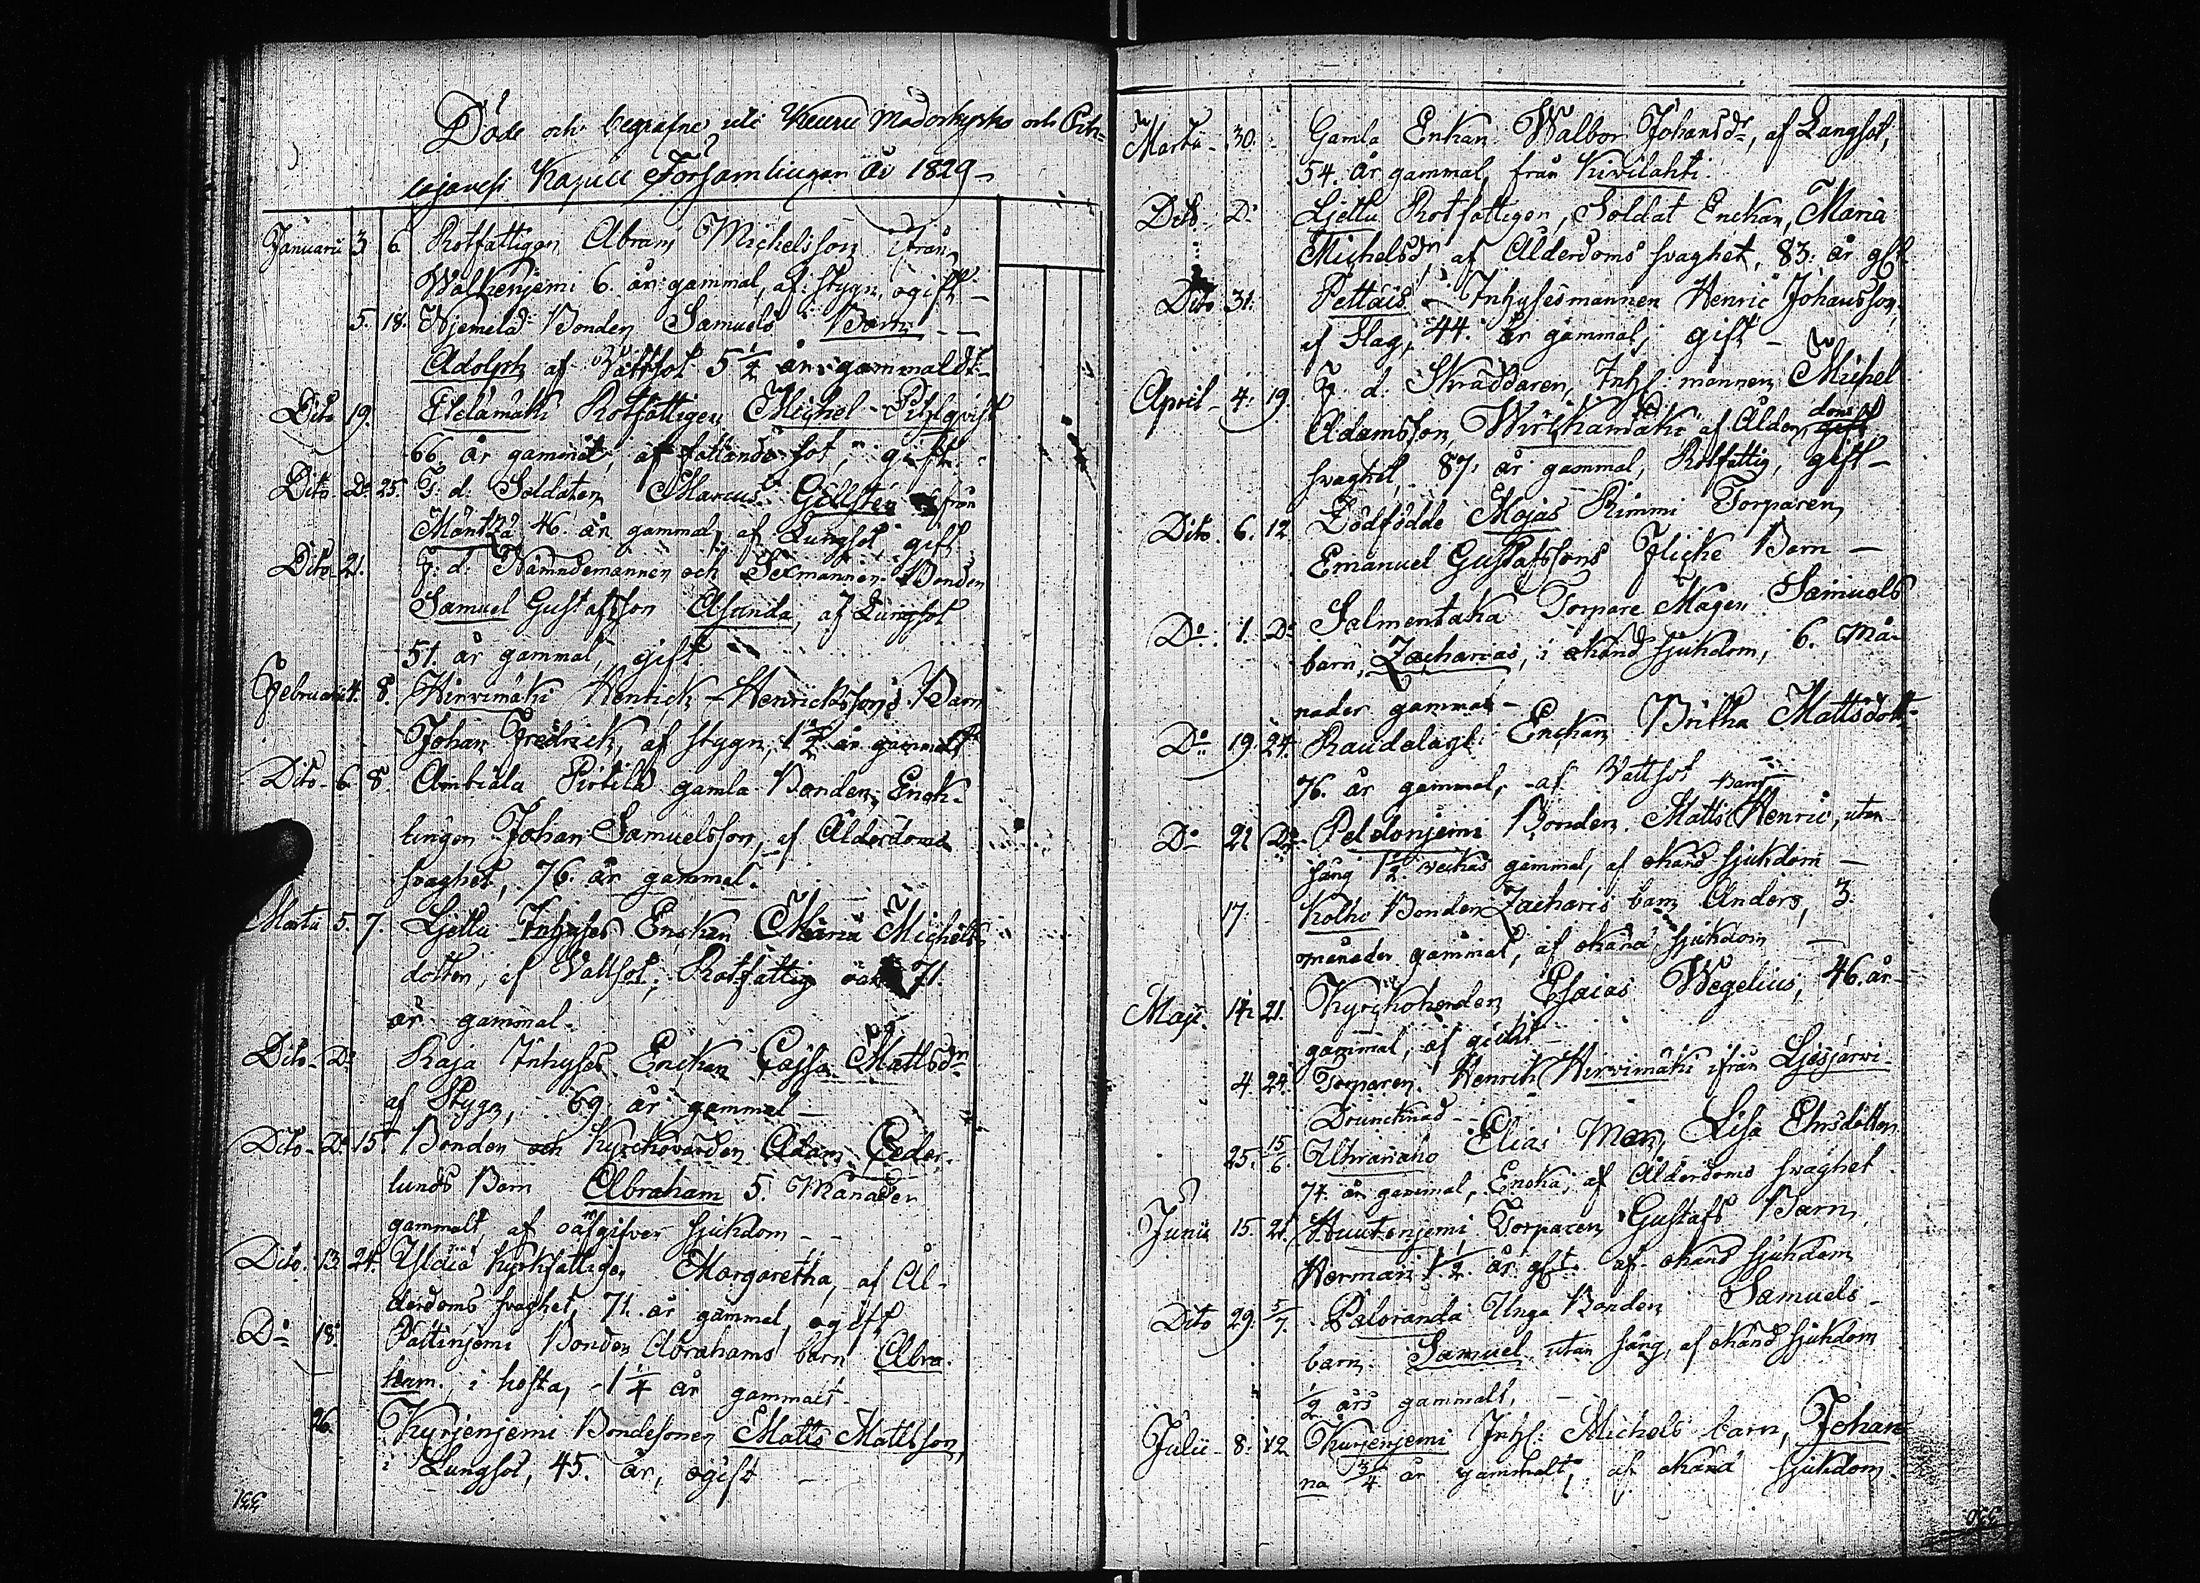 Döde och begrafne uti Keuru Moderkyrko och Pih-
lajavesi Kapell Församlingar År 1829
Januarii 3 6 Rotfattigen Abram Michelsson ifrån
Walkenjemi 6. år gammal, af stygn, ogift
5. 18. Bonden Samuels Barn
Adolph af Vattsot 5 1/2 år gammalt
Dito 19. Etelämäki Rotfattigen Michel
66 år gammal, af fallande sot, gift
Dito Do 25. F: d: Soldaten Marcus Gillstén från
Mänttä 46. år gammal, af Lungsot gift
Dito 21. F: d: Nämndemannen och Sexmannen Bonden
Samuel Gustafsson Asunda, af Lungsot
51. år gammal, gift
Februarii 4. 8. Hirvimäki Henrick Henrickssons Barn
Johan Fredrick, af stygn, 1 1/2 år gammalt
Dito 6 8. Ambiala Pirtilä gamla Bonden, Enck-
lingen Johan Samuelsson, af Ålderdoms
svaghet, 76. år gammal.
Martii 5. 7. Ljettu Inhyses Enckan Maria Michels-
dotter, af Vattsot, Rotfattig 71.
år gammal.
Dito Do Raja Inhyses Enckan Cajsa Mattsdr
af Stygn, 69 år gammal
Dito Do 15. Bonden och Kyrckovärden Adam Ceder-
lunds Barn Abraham 5. Månader
gammalt, af oangifven sjukdom
Dito 13. 24. Yldiä Kyrkfattigen Margaretha, af Ål-
derdoms svaghet, 71. år gammal, ogift
Do 18. Valtinjemi Bonden Abrahams barn Abra-
ham, i hosta, 1 1/4 år gammalt.
26. Kurjenjemi Bondesonen Matts Mattsson,
i Lungsot, 45. år, ogift
331
Martii 30. Gamla Enkan Walbor Johansdr, af Lungsot,
54. år gammal, från Kivilahti.
Dito Do Ljettu Rotfattigen, Soldat Enckan, Maria
Michelsdr af Ålderdoms svaghet, 83. år glt.
Dito 31. Pettäis Inhysesmannen Henric Johansson,
af Slag, 44. år gammal, gift
April 4. 19. F. d. Skräddaren, Inhs: mannen Michel
Adamsson, af Ålderdoms
svaghet, 87. år gammal, Rotfattig, gift
Dito 6. 12. Dödfödde Majas Rimmi Torparen
Emanuel Gustafssons Flicke Barn
Do 1. Do Salmentaka Torpare Mågen Samuels
barn, Zacharias, i okänd sjukdom, 6. Må-
nader gammal
Do 19. 24. Enckan Britha Mattsdott-
76. år gammal, af Vattsot
Do 21 Do Peldonjemi Bonden Matts barn Henric, utan
säng 1 1/2 veckas gammal, af okänd sjukdom
17. Kolho Bonden Zacharis barn Anders, 3.
månader gammal, af okänd sjukdom
Maji 14. 21. Kyrckoherden Esaias Wegelius, 46. år
gammal, af gickt
4. 24. Torparen Henrik Hirvimäki ifrån Ljesjärvi
Drunknad
25. 15/6. Elias Mor, Lisa Ehrsdotter
74. år gammal, Encka, af Ålderdoms svaghet
Junii 15. 21. Huutonjemi Torparen Gustafs Barn
Herman 1 1/2 år glt. af okänd sjukdom
Dito 29. 5/7. Paloranda Unga Bonden Samuels
barn Samuel, utan säng, af okänd sjukdom
1/2 års gammalt,
Julii 8. 12 Kurjenjemi Inhs: Michels barn, Johan-
na 3/4 år gammalt, af okänd sjukdom.
330